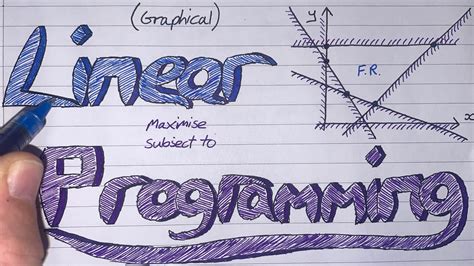 (Graphical)
Linear
y
F.R.
x
Maximise
subject to
Programming